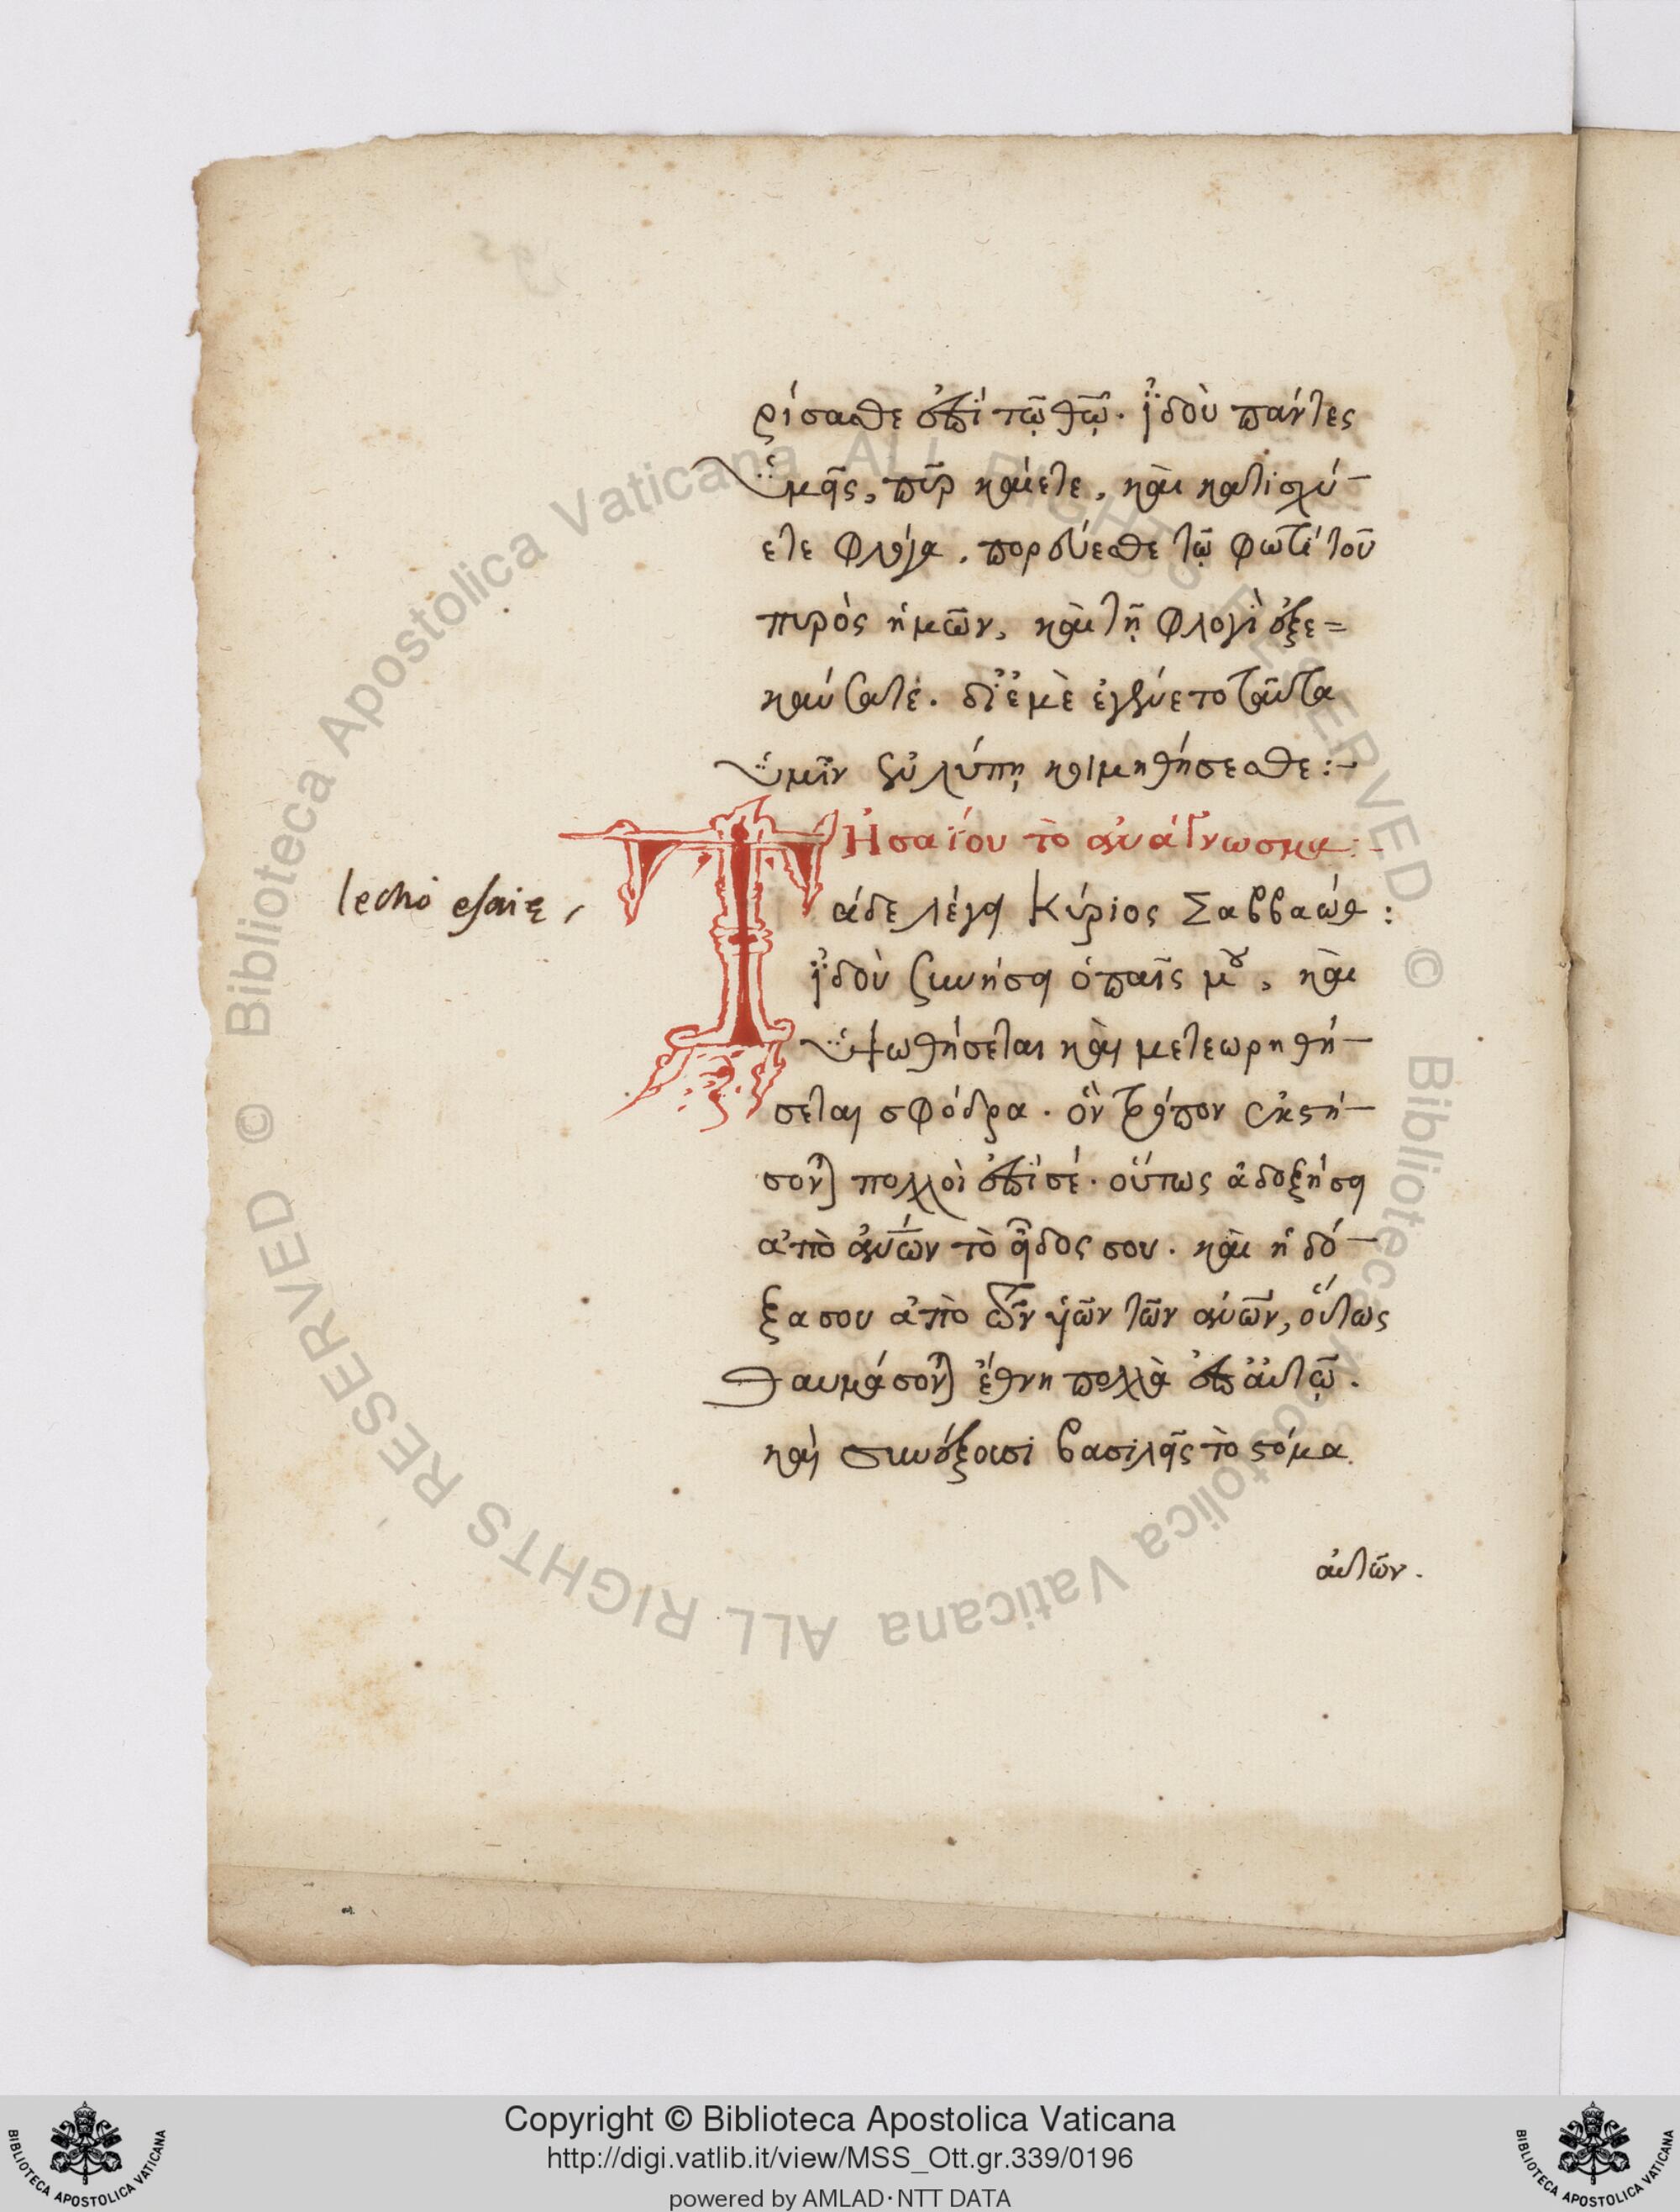 ρίσασθε ἐπὶ τῷ θῷ. ἰδοὺ πάντες
ὑμεῖς, πῦρ καίετε, καὶ κατισχύ-
ετε φλόγα. πορεύεσθε τῷ φωτὶ τοῦ
πυρὸς ἡμῶν, καὶ τῇ φλογὶ ἐξε=
καύσατέ. δι' ἐμὲ ἐγένετο ταῦτα
ὑμῖν ἐν λύπῃ κοιμηθήσεσθε:-
Ἡσαΐου τὸ ἀνάγνωσμα:-
lectio esaię,
Τάδε λέγει Κύριος Σαββαώθ:
ἰδοὺ συνήσει ὁ παῖς μου, καὶ
ὑψωθήσεται καὶ μετεωρηθή-
σεται σφόδρα. ὃν τρόπον ἐκστή-
σονται πολλοὶ ἐπὶ σέ. οὕτως ἀδοξήσει
ἀπὸ ἀνων τὸ εἶδος σου. καὶ ἡ δό-
ξα σου ἀπὸ τῶν υἱῶν τῶν ανων, οὕτως
θαυμάσονται ἔθνη πολλὰ ἐπ' αὐτῷ.
καὶ συνέξουσι βασιλεῖς τὸ στόμα
αὐτῶν.
Copyright © Biblioteca Apostolica Vaticana
http://digi.vatlib.it/view/MSS_Ott.gr.339/0196
powered by AMLAD·NTT DATA
BIBLIOTECA APOSTOLICA VATICANA
BIBLIOTECA APOSTOLICA VATICANA
© Biblioteca Apostolica Vaticana ALL RIGHTS RESERVED
© Biblioteca Apostolica Vaticana ALL RIGHTS RESERVED